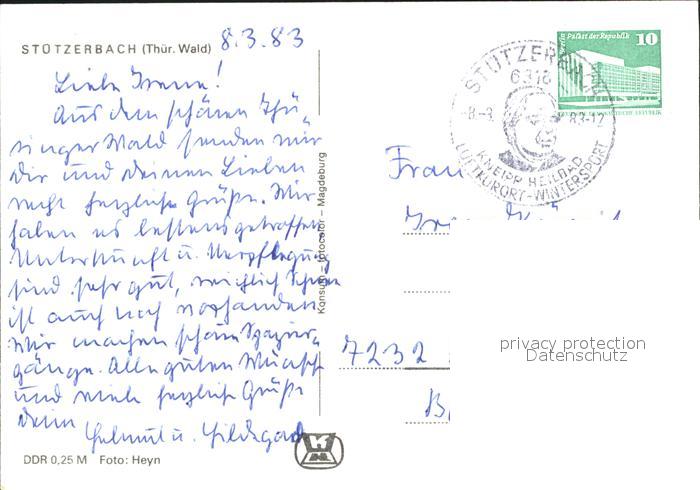 STÜTZERBACH (Thür. Wald) 8.3.83
Liebe Irene!
Aus dem schönen Thü-
ringer Wald senden wir
Dir und deinen Lieben
recht herzliche Grüße. Wir
haben es bestens getroffen
Unterkunft u. Verpflegung
sind sehr gut, reichlich Schnee
ist auch noch vorhanden.
Wir machen schöne Spazier-
gänge. Alle guten Wünsche
und viele herzliche Grüße
Helmut u. Hildegard
DDR 0,25 M Foto: Heyn
Konsum - Fotocolor - Magdeburg
Berlin Palast der Republik 10
DEUTSCHE DEMOKRATISCHE REPUBLIK
STÜTZERBACH
6316
-8.-3. 83-12
KNEIPP HEILBAD
LUFTKURORT-WINTERSPORT
Frau
7232
privacy protection
Datenschutz